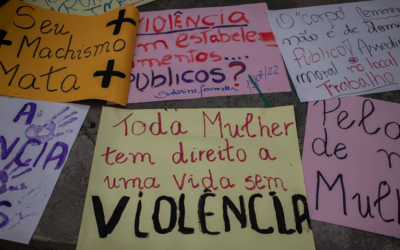 Seu
Machismo
Mata
VIOLÊNCIA
em estabele
cimentos...
PÚBLICOS?
O "corpo" feminino
não é de domí
Público? Assédio
moral no local
Trabalho
A
VIOLÊNCIA
Toda Mulher
tem direito a
uma vida sem
VIOLÊNCIA
Pela
de
Mulh